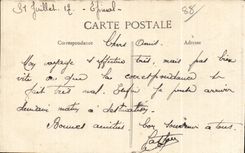 31 Juillet 17 - Epinal
88
CARTE POSTALE
Correspondance
Adresse
Chers Amis.
Mon voyage s'effectue très, mais pas bien
vite vu que les correspondances se
font très mal. Enfin je pense arriver
demain matin à destination.
Bonnes amitiés bon souvenir à tous.